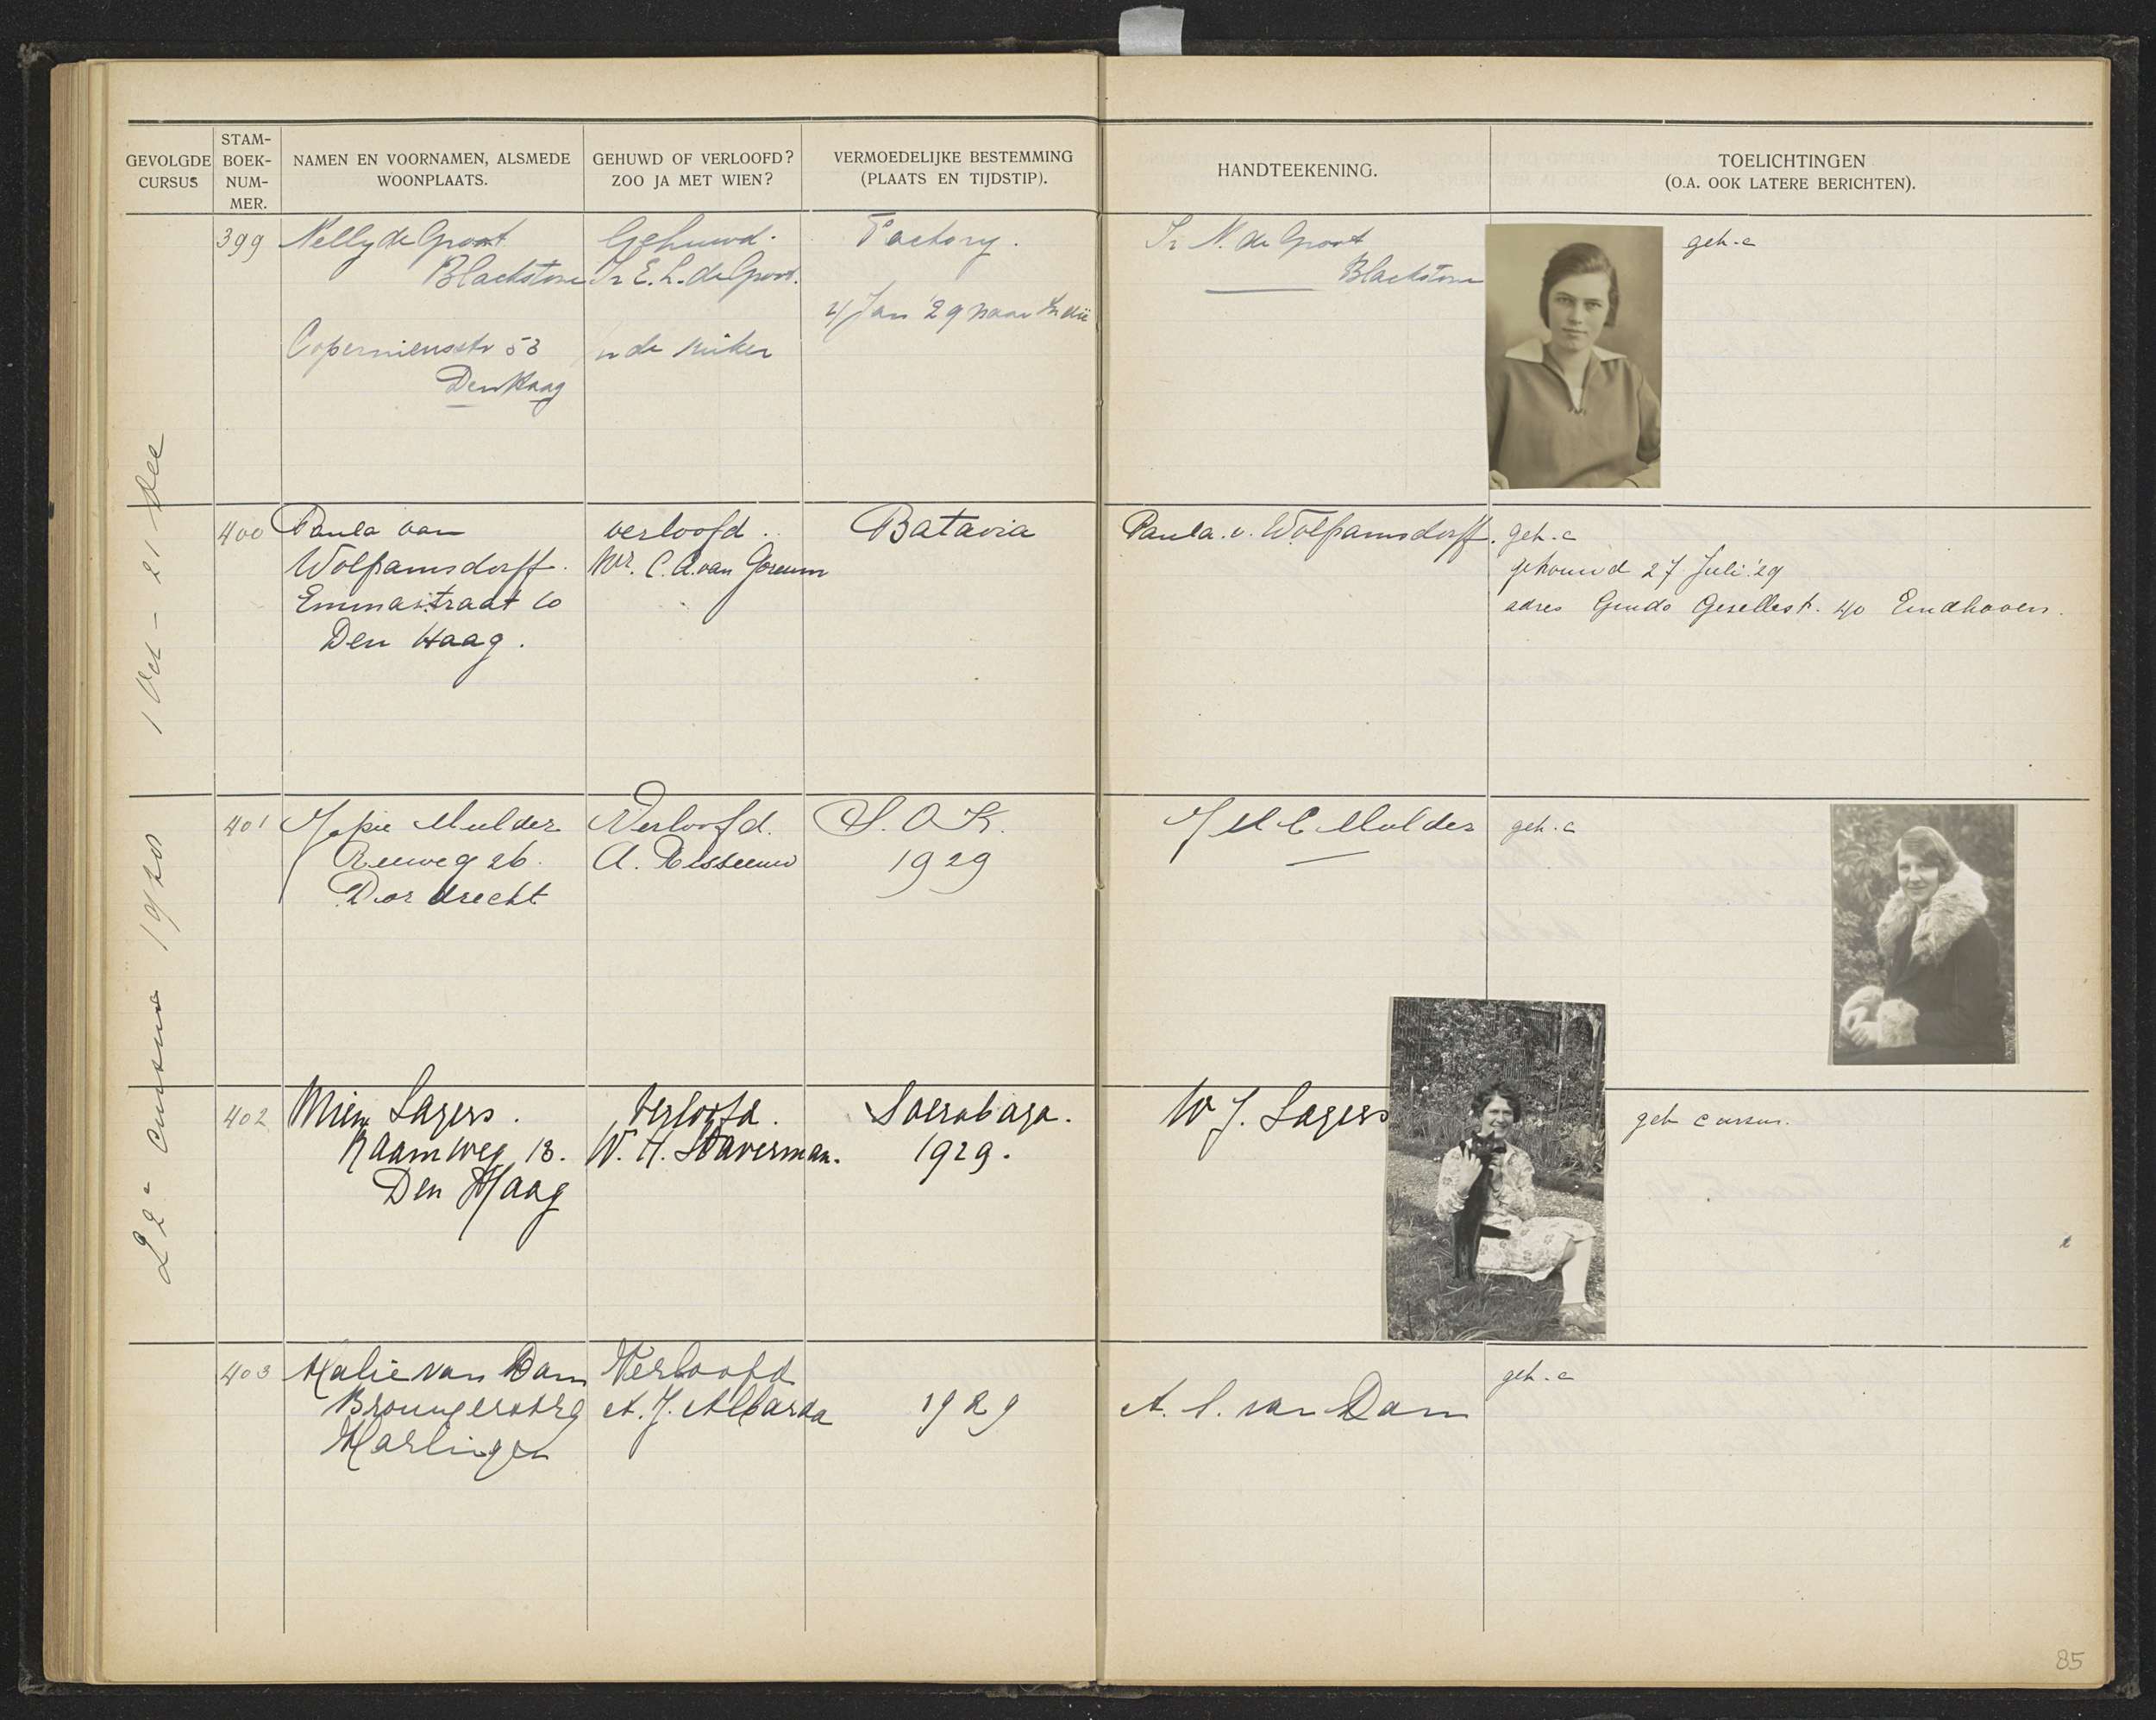 GEVOLGDE CURSUS
STAM-BOEK-NUM-MER.
NAMEN EN VOORNAMEN, ALSMEDE WOONPLAATS.
GEHUWD OF VERLOOFD? ZOO JA MET WIEN?
VERMOEDELIJKE BESTEMMING (PLAATS EN TIJDSTIP).
HANDTEEKENING.
TOELICHTINGEN (O.A. OOK LATERE BERICHTEN).
22e cursus 1928 1 Oct - 21 Dec
399
Nelly de Groot
Blackstone
Copernicusstr 53
Den Haag
Gehuwd.
Ir E.L. de Groot.
Factory.
4 Jan '29 naar Indië
Ir N. de Groot
Blackstone
geh. c
400
Paula van
Wolframsdorff.
Emmastraat 60
Den Haag.
verloofd.
Mr. C.A. van Gorcum
Batavia
Paula. v. Wolframsdorff.
geh. c
gehouwd 27 Juli '29
adres Guido Gesellestr. 40 Eindhoven.
401
Jopie Mulder
Reeweg 26.
Dordrecht
Verloofd.
A. Risseeuw
S.O.K.
1929
J M C Mulder
geh. c
402
Mien Lagers.
Raamweg 13.
Den Haag
Verloofd.
W. H. Staverman.
Soerabaja.
1929.
W J. Lagers
geh cursus.
403
Malie van Dam
Harlingen
Verloofd
A. J. Albarda
1929
A. C. van Dam
geh. c
85